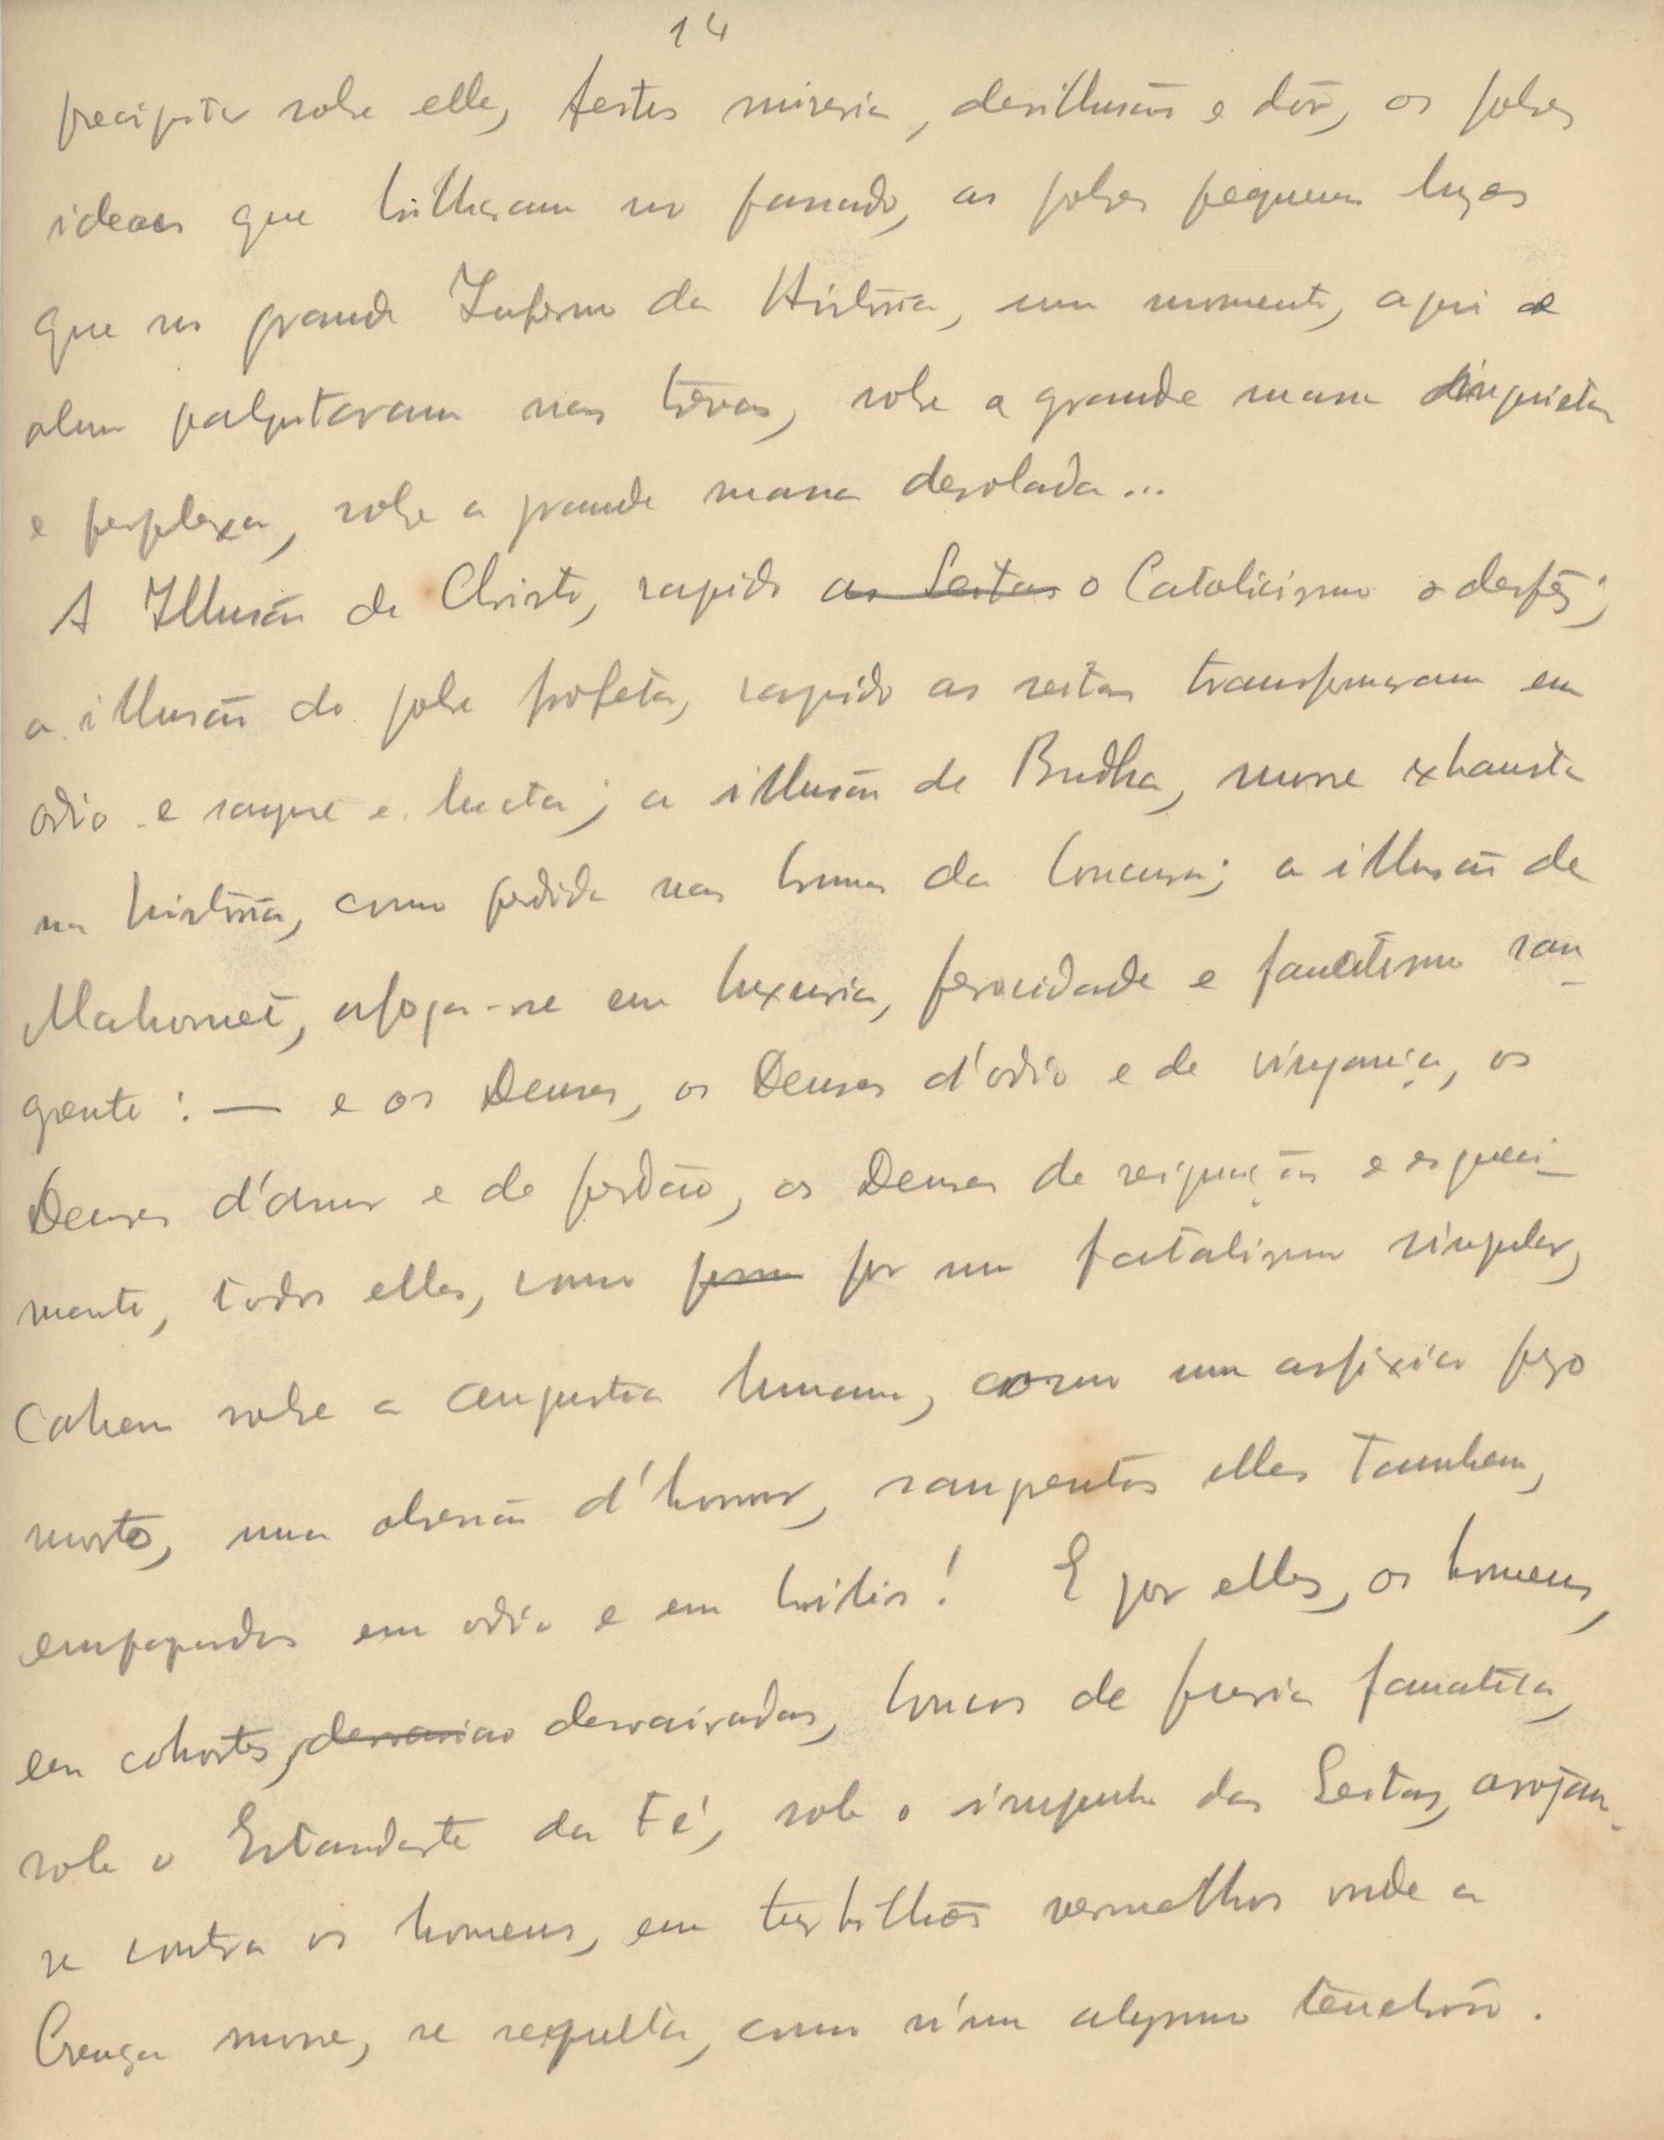 14
precipita sobre elle, destes miseria, desillusão e dôr, os pobres
ideaes que brilharam no passado, as pobres pequenas luzes
que no grande Inferno da História, um momento, aqui e
alem palpitaram nas trévas, sobre a grande massa inquieta
e perplexa, sobre a grande massa desolada...
A Illusão de Christo, rapido as Seitas o Catolicismo a desfez;
a illusão do pobre profeta, rapido as seitas transformaram em
odio e sangue e lucta; a illusão de Budha, morre exhausta
na história, como perdida nas brumas da loucura; a illusão de
Mahomet, afoga-se em luxuria, ferocidade e fanatismo san-
grento: — e os Deuses, os Deuses d'odio e de vingança, os
Deuses d'amor e de perdão, os Deuses de resignação e esqueci-
mento, todos elles, como por um fatalismo singular,
cahem sobre a angustia humana, como um asfixia peso
morto, uma obsessão d'horror, sangrentos elles tambem,
empapados em odio e em bilis! E por elles, os homens,
em cohortes, desvairadas, loucos de furia fanatica,
sob o Estandarte da Fé, sob o impulso das Seitas, arrojam-
se contra os homens, em turbilhões vermelhos onde a
Crença morre, se sepulta, como n'um abysmo tenebroso.